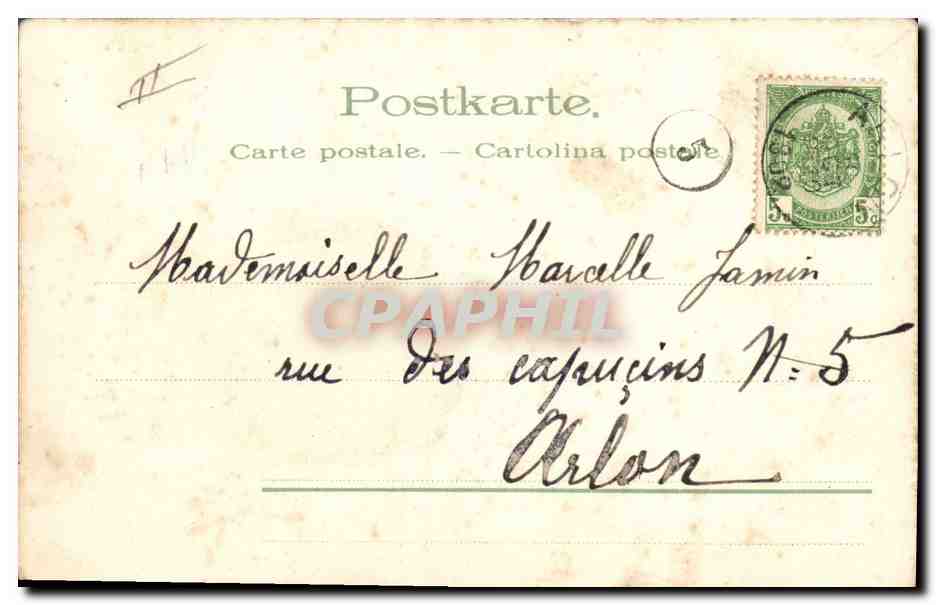 II
Postkarte.
Carte postale. — Cartolina postale
5
5c POSTERIJEN 5c
Mademoiselle Marcelle Jamin
CPAPHIL
rue des capuçins N= 5
Arlon